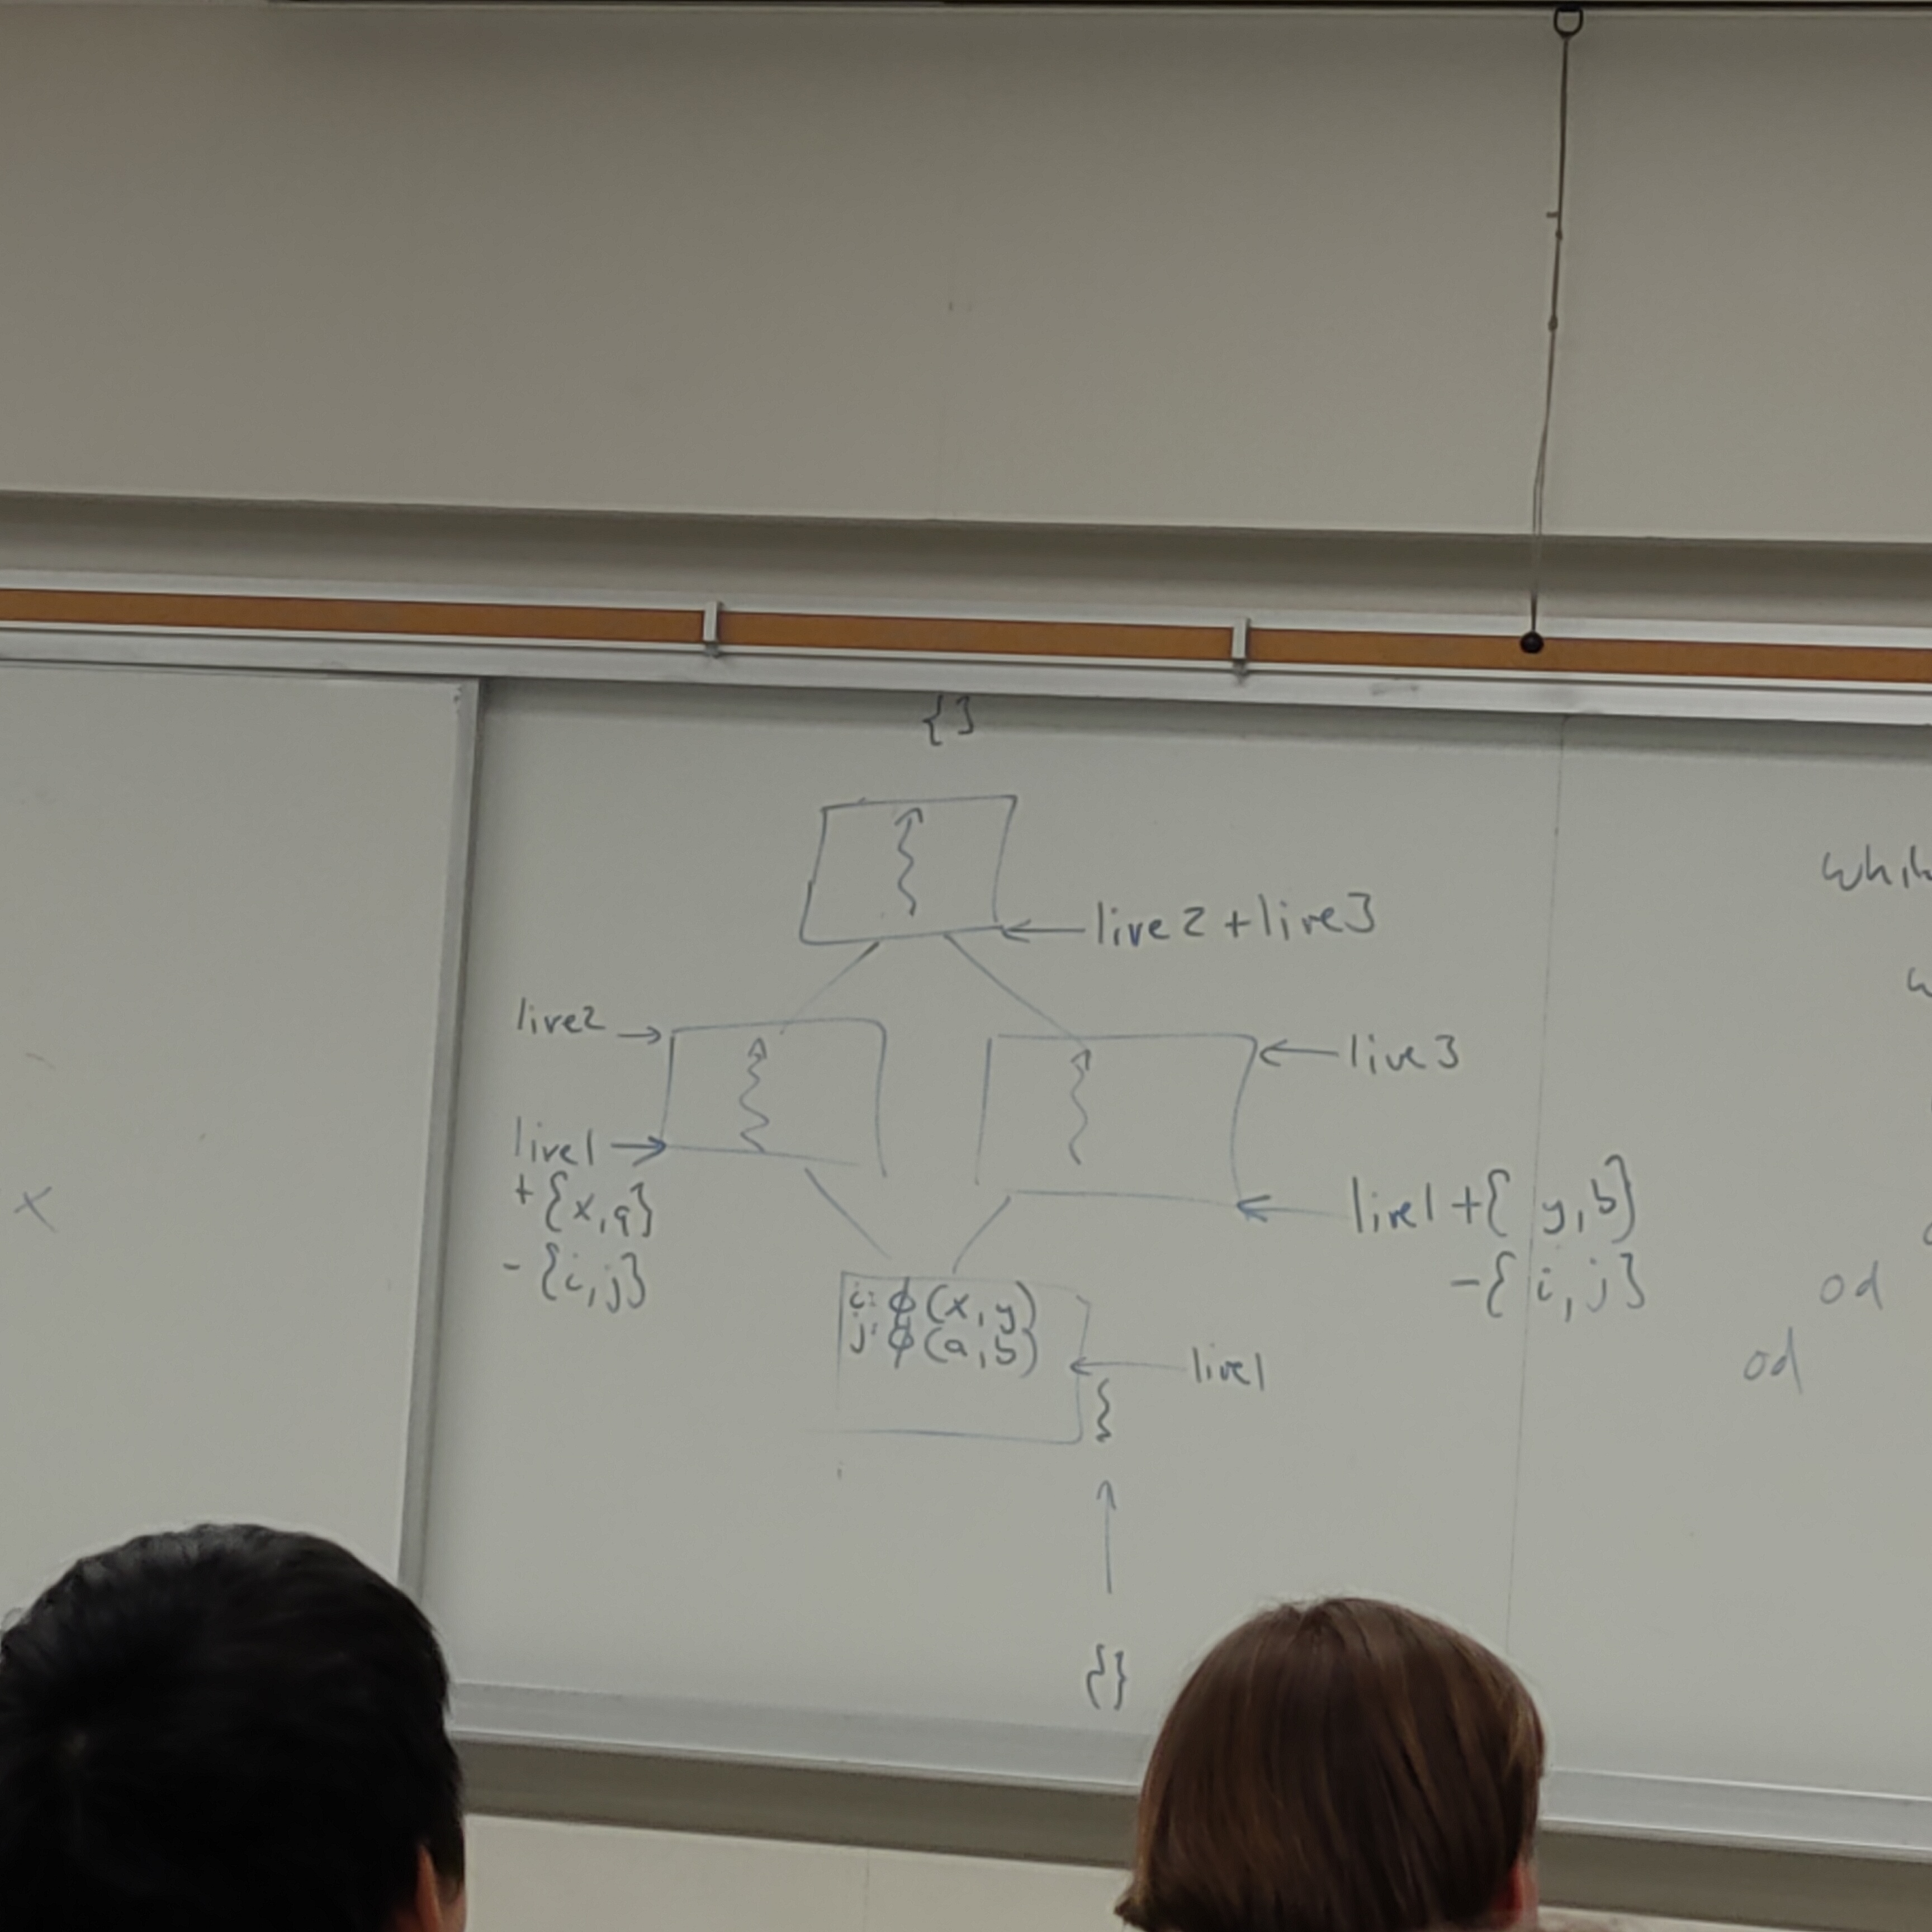 {}
live2 + live3
live2
live3
live1
+{x,a}
-{i,j}
live1 + {y,b}
-{i,j}
i: φ(x,y)
j: φ(a,b)
live1
{}
x
od
od